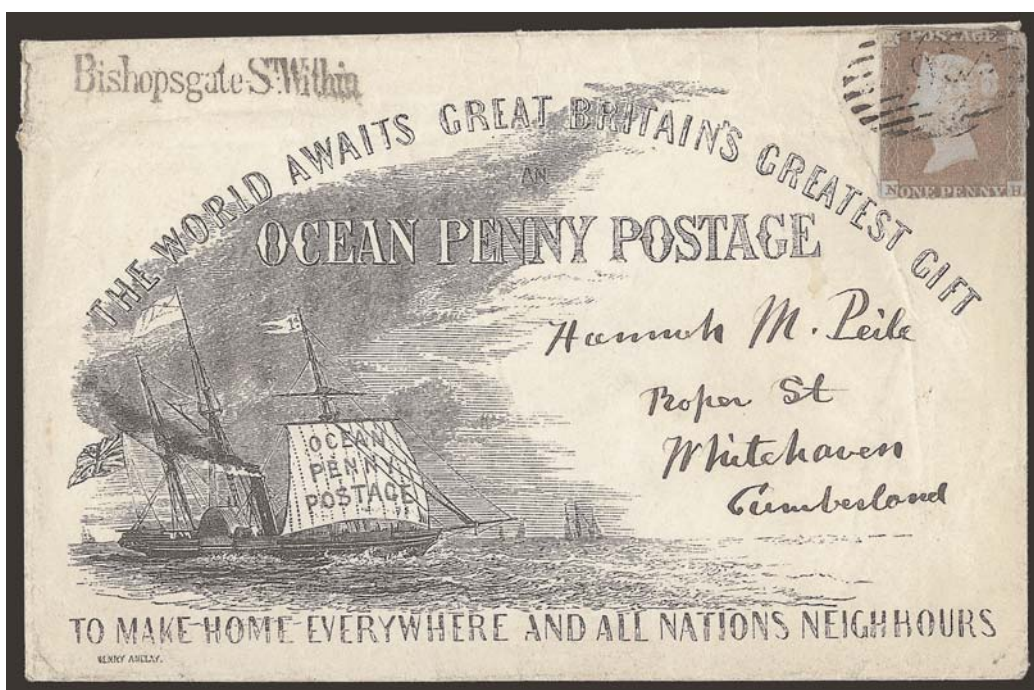 Bishopsgate-St. Within
POSTAGE
ONE PENNY
N H
THE WORLD AWAITS GREAT BRITAIN'S GREATEST GIFT
AN
OCEAN PENNY POSTAGE
Hannah M. Peile
Roper St
Whitehaven
Cumberland
OCEAN
PENNY
POSTAGE
TO MAKE HOME EVERYWHERE AND ALL NATIONS NEIGHBOURS
HENRY ANELAY.